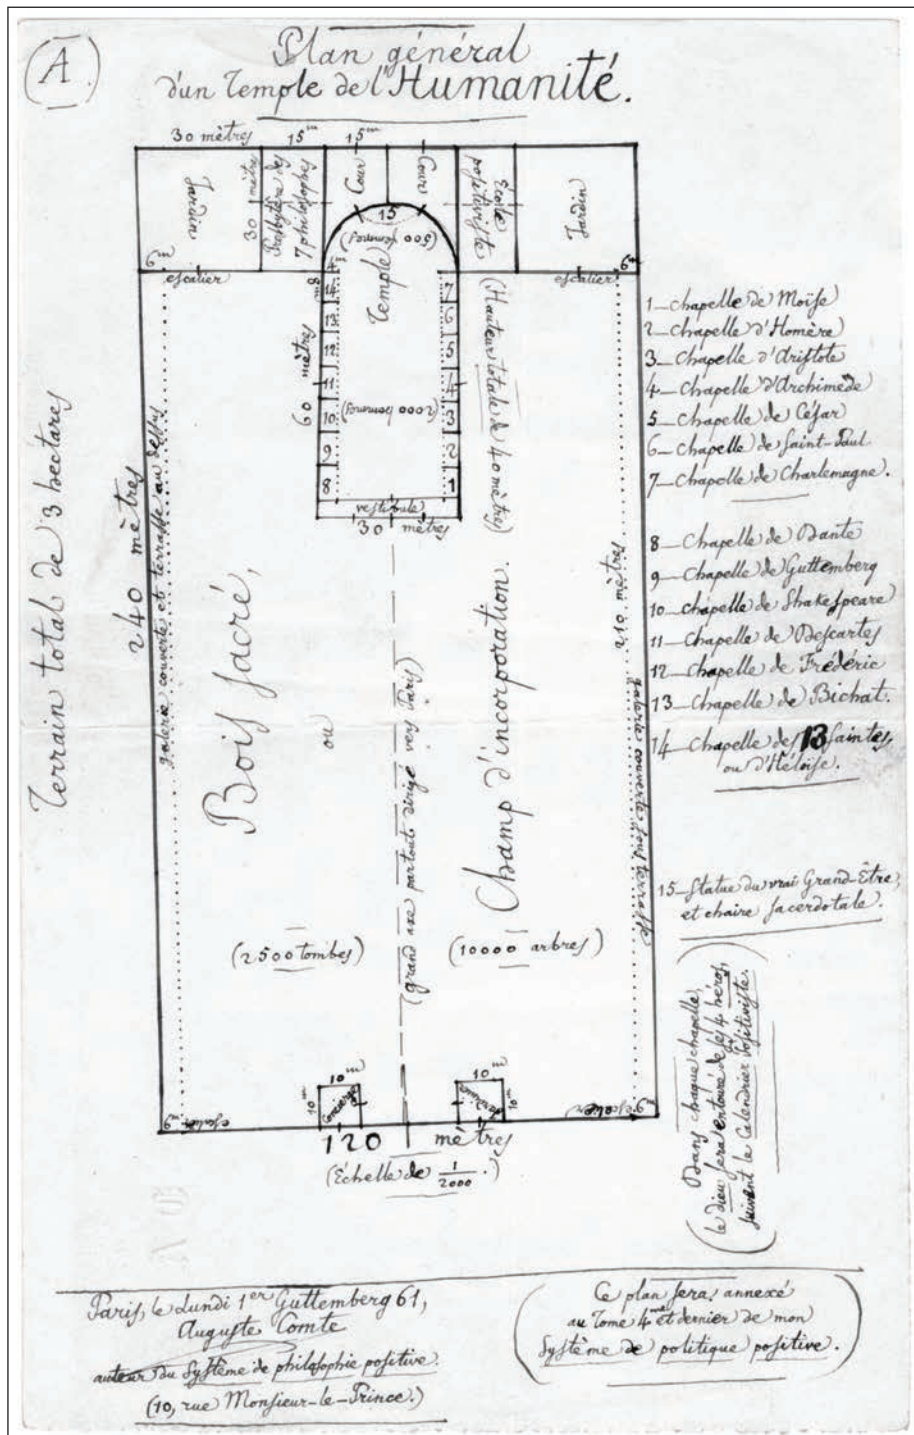 A.
Plan général
d'un Temple de l'Humanité.
30 mètres
15 m
15 m
Jardin
30 mètres
Presbytère des
7 philosophes
Cour
Cour
École
positiviste
Jardin
15
(500 femmes)
6 m
escalier
8 m
4 m
Temple
escalier
6 m
14
13
12
11
10
9
8
7
6
5
4
3
2
1
60 mètres
(2000 hommes)
vestibule
30 mètres
(Hauteur totale de 40 mètres)
Terrain total de 3 hectares
240 mètres
galerie couverte et terrasse au dessus
Bois sacré,
ou
Champ d'incorporation.
(grand axe partout dirigé vers Paris)
210 mètres
galerie couverte sous terrasse
(2500 tombes)
(10000 arbres)
10 m
10 m
Concierge
10 m
10 m
6 m
escalier
escalier
6 m
120 mètres
(Échelle de 1/2000.)
1_Chapelle de Moïse
2_Chapelle d'Homère
3_Chapelle d'Aristote
4_Chapelle d'Archimède
5_Chapelle de César
6_Chapelle de Saint-Paul
7_Chapelle de Charlemagne.
8_Chapelle de Dante
9_Chapelle de Guttemberg
10_Chapelle de Shakespeare
11_Chapelle de Descartes
12_Chapelle de Frédéric
13_Chapelle de Bichat.
14_Chapelle des 13 Saintes,
ou d'Héloïse.
15_Statue du vrai Grand-Être,
et chaire sacerdotale.
(Dans chaque chapelle,
le dieu sera entouré de ses 4 héros,
suivant le Calendrier Positiviste.)
Paris, le Lundi 1er Guttemberg 61,
Auguste Comte
auteur du Système de philosophie positive.
(10, rue Monsieur-le-Prince.)
(Ce plan sera annexé
au Tome 4me et dernier de mon
Système de politique positive.)